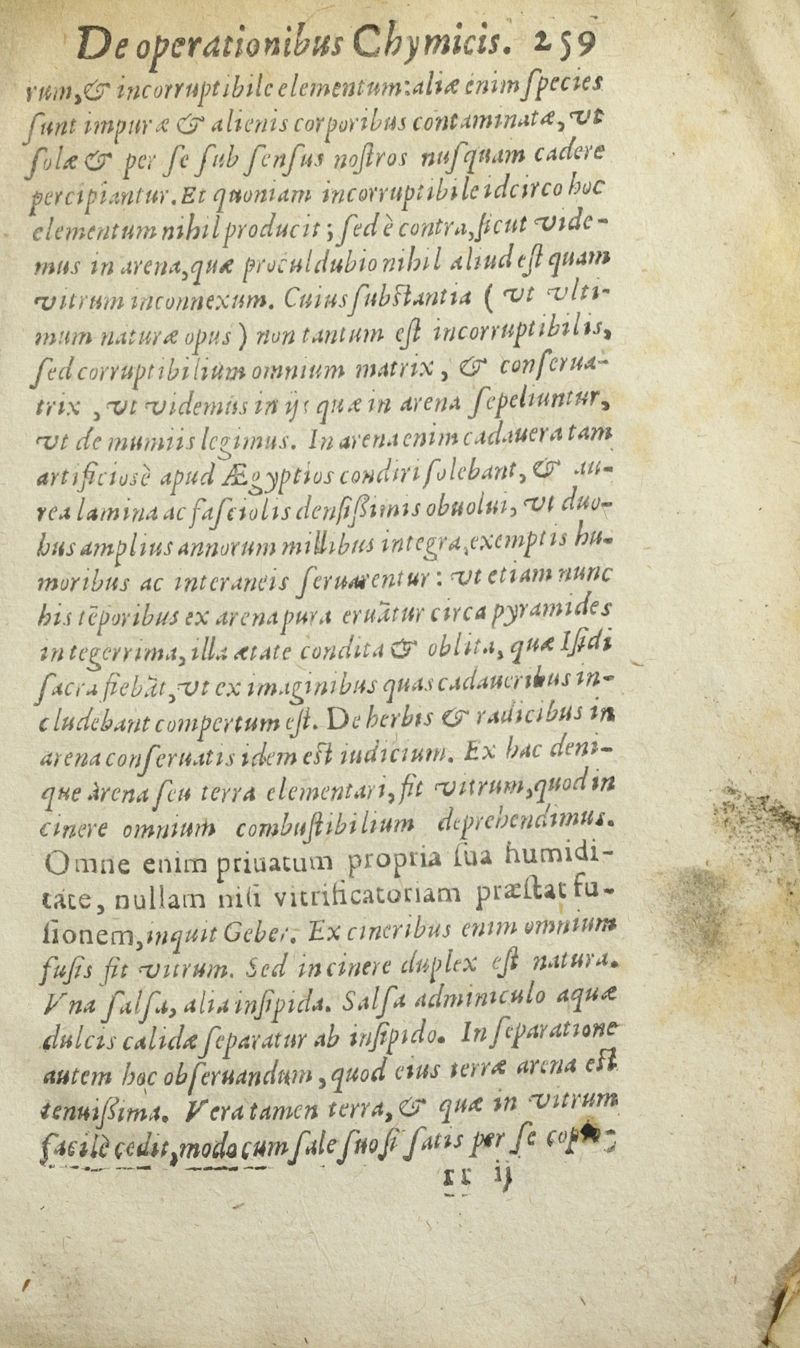 De operationibus Chymicis. 259
rum, & incorruptibile elementum: aliæ enim ſpecies
ſunt impuræ & alienis corporibus contaminatæ, vt
ſolæ & per ſe ſub ſenſus noſtros nuſquam cadere
percipiantur. Et quoniam incorruptibile idcirco hoc
elementum nihil producit; ſed è contra, ſicut vide-
mus in arena, quæ proculdubio nihil aliud eſt quam
vitrum inconnexum. Cuius ſubſtantia ( vt vlti-
mum naturæ opus ) non tantum eſt incorruptibilis,
ſed corruptibilium omnium matrix, & conſerua-
trix , vt videmus in ijs quæ in arena ſepeliuntur,
vt de mumiis legimus. In arena enim cadauera tam
artificiosè apud Ægyptios condiri ſolebant, & au-
rea lamina ac faſciolis denſiſſimis obuolui, vt duo-
bus amplius annorum millibus integra, exemptis hu-
moribus ac interaneis ſeruarentur: vt etiam nunc
his tẽporibus ex arena pura eruãtur circa pyramides
integerrima, illa ætate condita & oblita, quæ Iſidi
ſacra fiebãt, vt ex imaginibus quas cadaueribus in-
cludebant compertum eſt. De herbis & radicibus in
arena conſeruatis idem eſt iudicium. Ex hac deni-
que arena ſeu terra elementari, fit vitrum, quod in
cinere omnium combuſtibilium deprehendimus.
Omne enim priuatum propria ſua humidi-
tate, nullam niſi vitrificatoriam præſtat fu-
ſionem, inquit Geber. Ex cineribus enim omnium
fuſis fit vitrum. Sed in cinere duplex eſt natura.
Vna ſalſa, alia inſipida. Salſa adminiculo aquæ
dulcis calidæ ſeparatur ab inſipido. In ſeparatione
autem hoc obſeruandum, quod eius terræ arena eſt
tenuiſſima. Vera tamen terra, & quæ in vitrum
facilè cedit, modo cum ſale ſuo ſi ſatis per ſe
rr ij